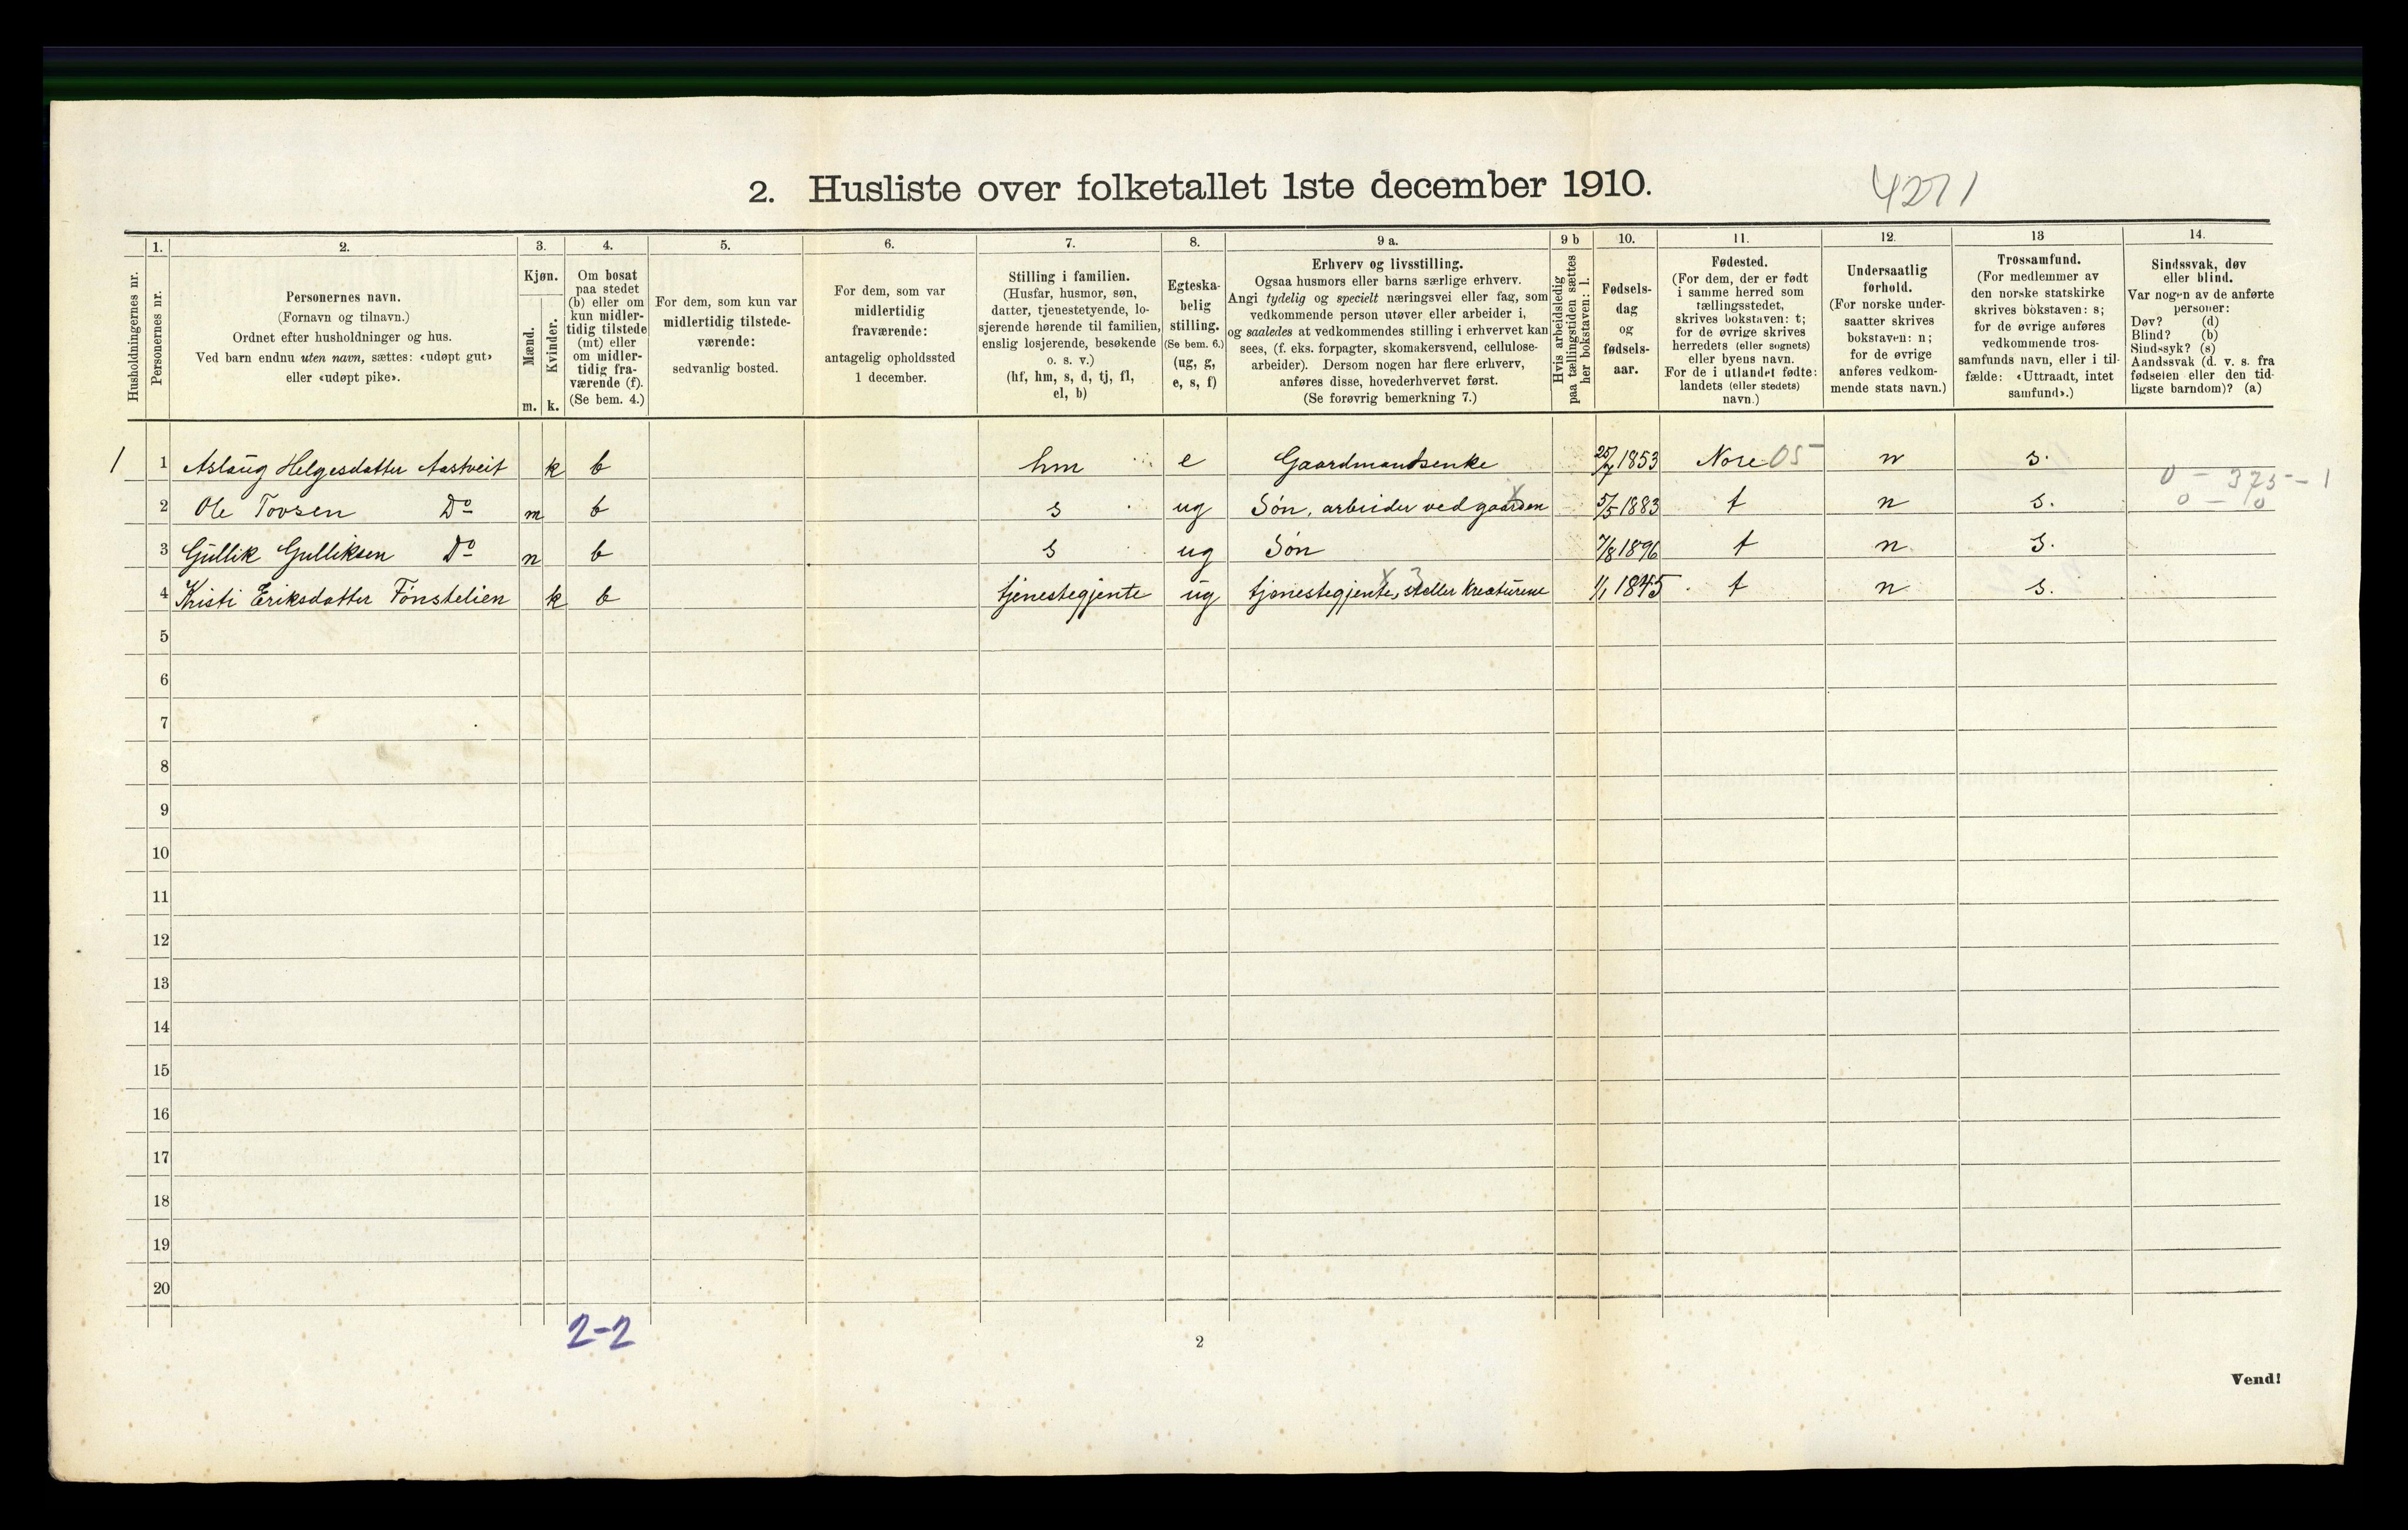 2. Husliste over folketallet 1ste december 1910.
4271
Husholdningernes nr.
1.
Personernes nr.
2.
Personernes navn.
(Fornavn og tilnavn.)
Ordnet efter husholdninger og hus.
Ved barn endnu uten navn, sættes: «udøpt gut»
eller «udøpt pike».
3.
Kjøn.
Mænd.
Kvinder.
m. k.
4.
Om bosat
paa stedet
(b) eller om
kun midler-
tidig tilstede
(mt) eller
om midler-
tidig fra-
værende (f).
(Se bem. 4.)
5.
For dem, som kun var
midlertidig tilstede-
værende:
sedvanlig bosted.
6.
For dem, som var
midlertidig
fraværende:
antagelig opholdssted
1 december.
7.
Stilling i familien.
(Husfar, husmor, søn,
datter, tjenestetyende, lo-
sjerende hørende til familien,
enslig losjerende, besøkende
o. s. v.)
(hf, hm, s, d, tj, fl,
el, b)
8.
Egteska-
belig
stilling.
(Se bem. 6.)
(ug, g,
e, s, f)
9 a.
Erhverv og livsstilling.
Ogsaa husmors eller barns særlige erhverv.
Angi tydelig og specielt næringsvei eller fag, som
vedkommende person utøver eller arbeider i,
og saaledes at vedkommendes stilling i erhvervet kan
sees, (f. eks. forpagter, skomakersvend, cellulose-
arbeider). Dersom nogen har flere erhverv,
anføres disse, hovederhvervet først.
(Se forøvrig bemerkning 7.)
9 b
Hvis arbeidsledig
paa tællingstiden sættes
her bokstaven: l.
10.
Fødsels-
dag
og
fødsels-
aar.
11.
Fødested.
(For dem, der er født
i samme herred som
tællingsstedet,
skrives bokstaven: t;
for de øvrige skrives
herredets (eller sognets)
eller byens navn.
For de i utlandet fødte:
landets (eller stedets)
navn.)
12.
Undersaatlig
forhold.
(For norske under-
saatter skrives
bokstaven: n;
for de øvrige
anføres vedkom-
mende stats navn.)
13
Trossamfund.
(For medlemmer av
den norske statskirke
skrives bokstaven: s;
for de øvrige anføres
vedkommende tros-
samfunds navn, eller i til-
fælde: «Uttraadt, intet
samfund».)
14.
Sindssvak, døv
eller blind.
Var nogen av de anførte
personer:
Døv? (d)
Blind? (b)
Sindssyk? (s)
Aandssvak (d. v. s. fra
fødselen eller den tid-
ligste barndom)? (a)
1 1 Aslaug Helgesdatter Aastveit k b hm e Gaardmandsenke 25/7 1853 Nore 05 n s.
0 - 375 - 1
2 Ole Tovsen Do m b s ug Søn, arbeider ved gaarden 5/5 1883 t n s. 0 - 10
3 Gullik Gulliksen Do m b s ug Søn 7/8 1896 t n s.
4 Kristi Eriksdatter Fønstelien k b tjenestegjente ug tjenestegjente, steller Kreaturene 1/1 1845 t n s.
5
6
7
8
9
10
11
12
13
14
15
16
17
18
19
20
2-2
2
Vend!